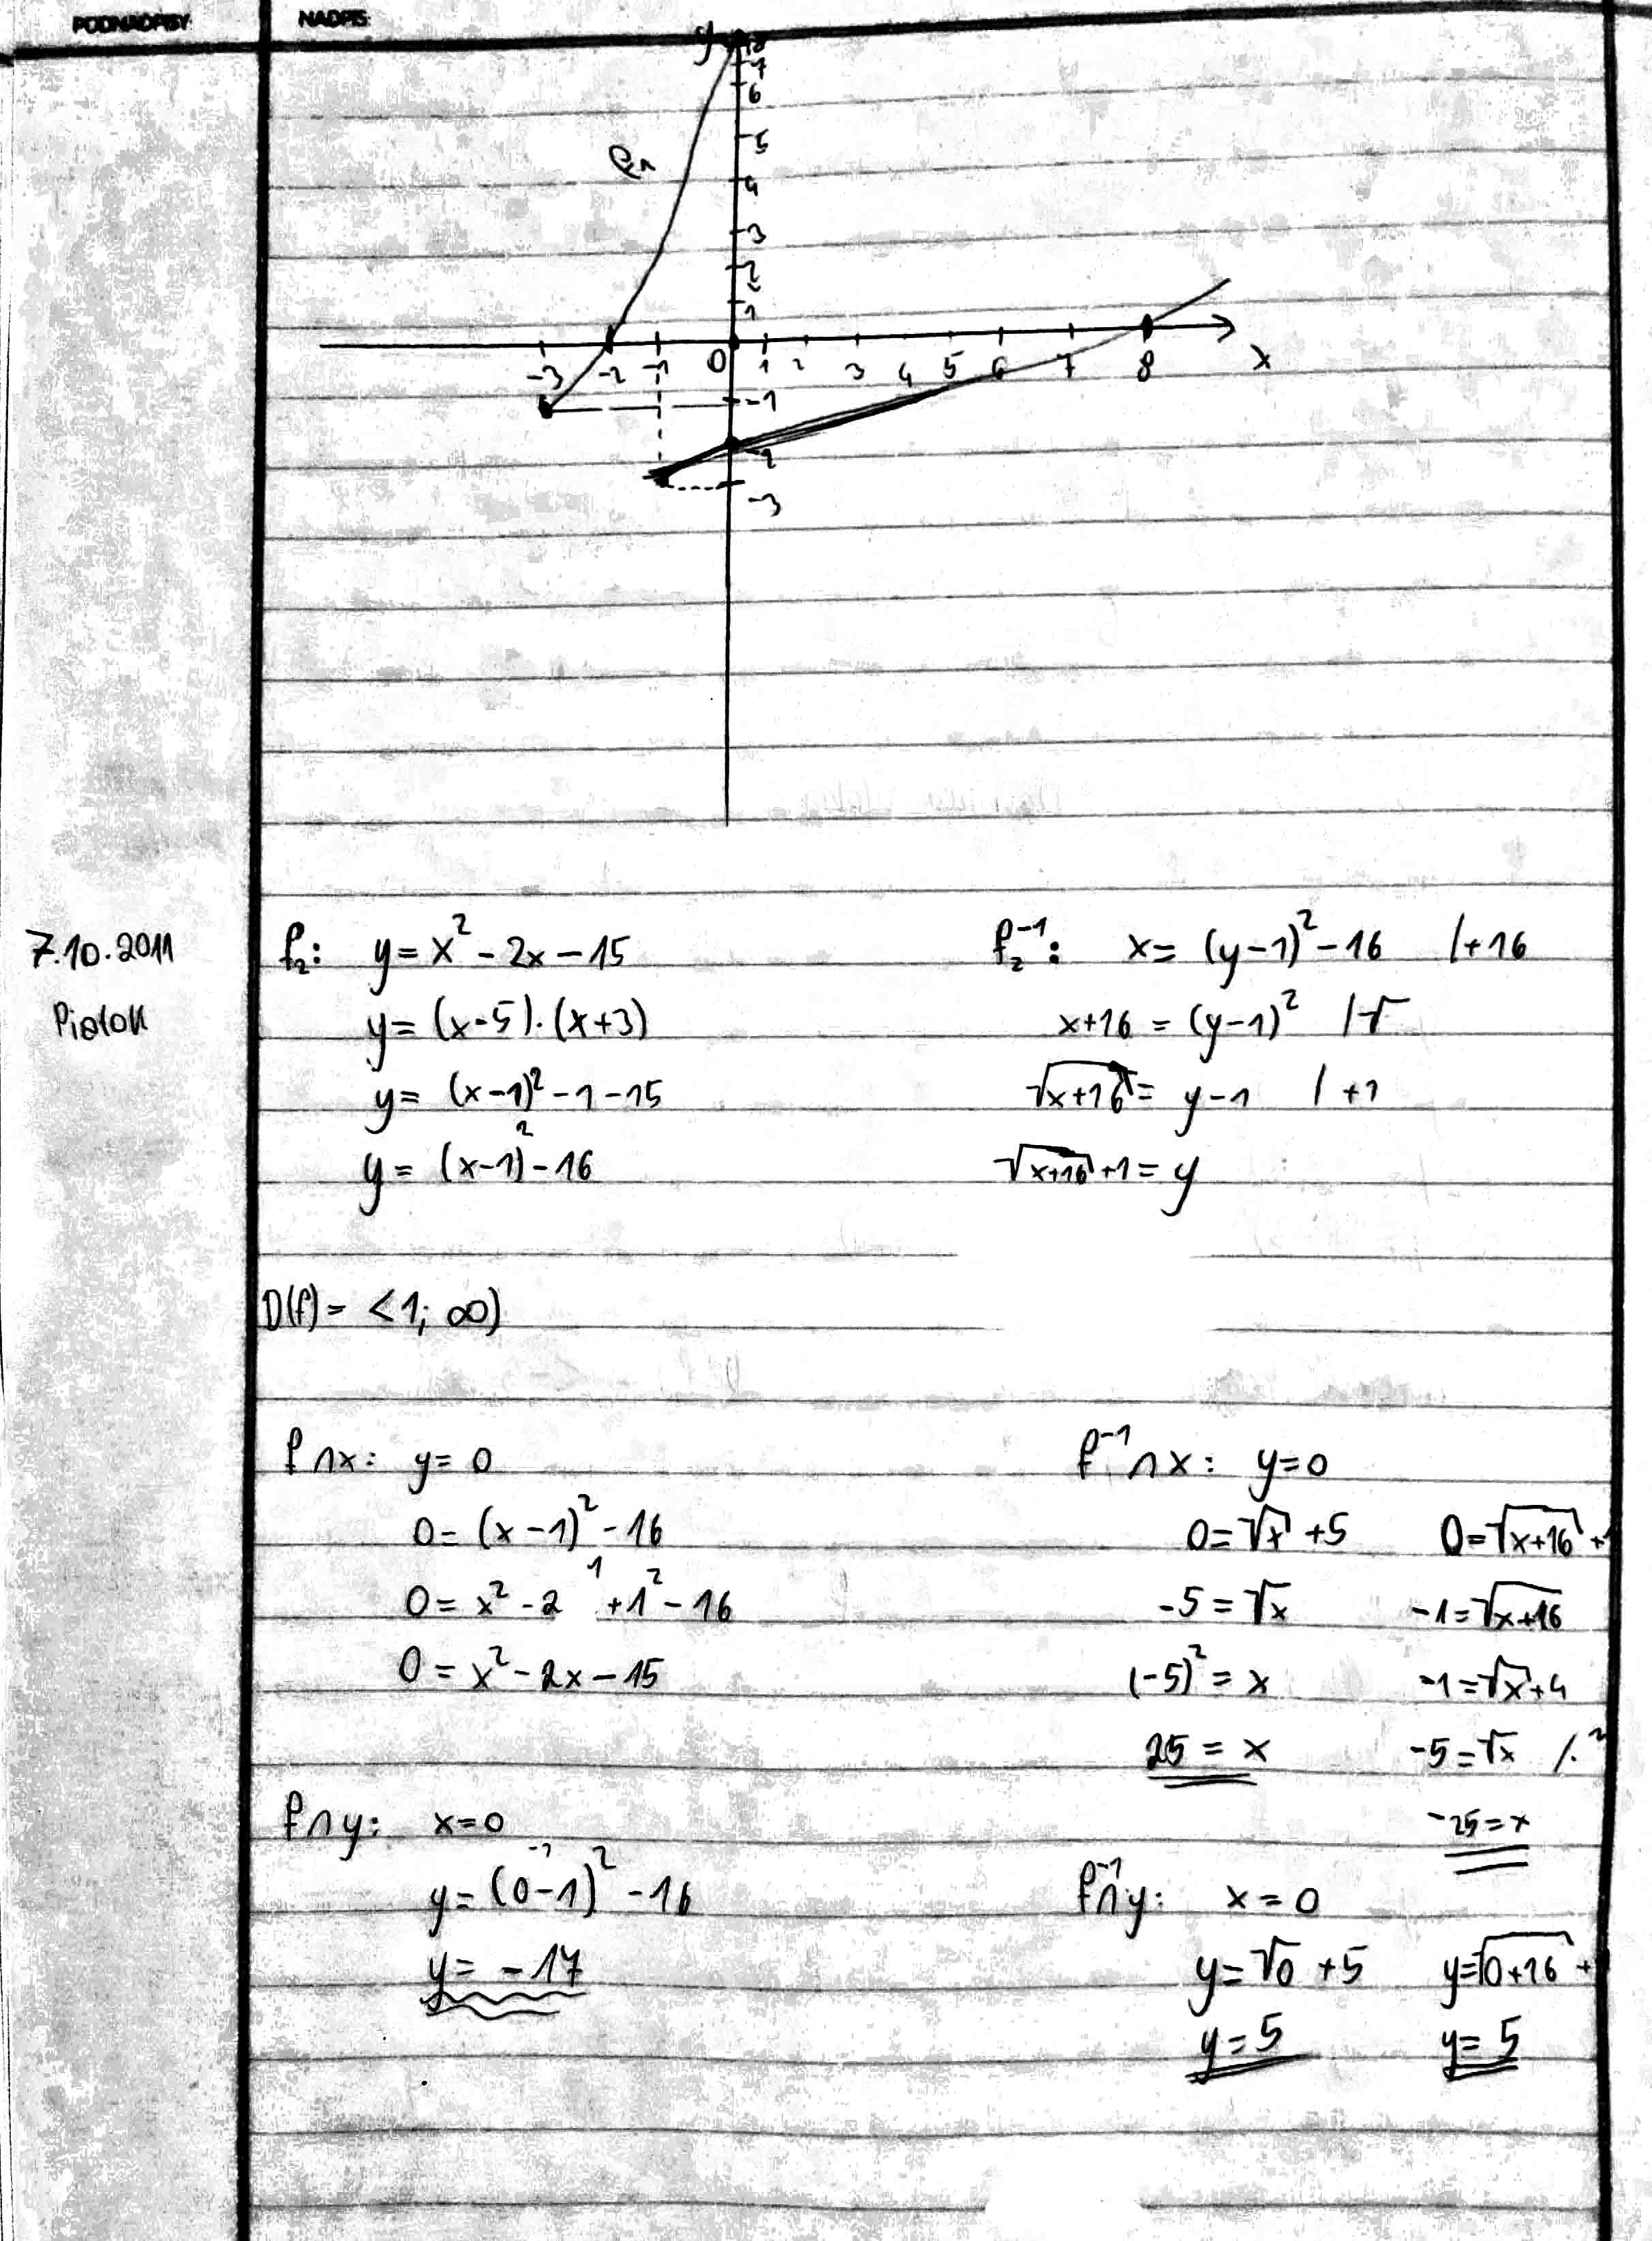 PODNADPISY
NADPIS:
y
8
7
6
5
4
3
2
1
f₁
-3 -2 -1 0 1 2 3 4 5 6 7 8 x
-1
-2
-3
7.10.2011
Piatok
f₂: y = x² - 2x - 15
y = (x-5)·(x+3)
y = (x-1)² - 1 - 15
y = (x-1)² - 16
f₂⁻¹: x = (y-1)² - 16 /+16
x+16 = (y-1)² /√
√x+16 = y-1 / +1
√x+16 +1 = y
D(f) = <1; ∞)
f∩x: y = 0
0 = (x-1)² - 16
0 = x² - 2 1 + 1² - 16
0 = x² - 2x - 15
f∩y: x=0
-1
y = (0-1)² - 16
y = -17
f⁻¹∩x: y=0
0 = √x + 5
-5 = √x
(-5)² = x
25 = x
0 = √x+16 +
-1 = √x+16
-1 = √x + 4
-5 = √x /·²
-25 = x
f⁻¹∩y: x = 0
y = √0 + 5
y = 5
y = √0+16 +
y = 5